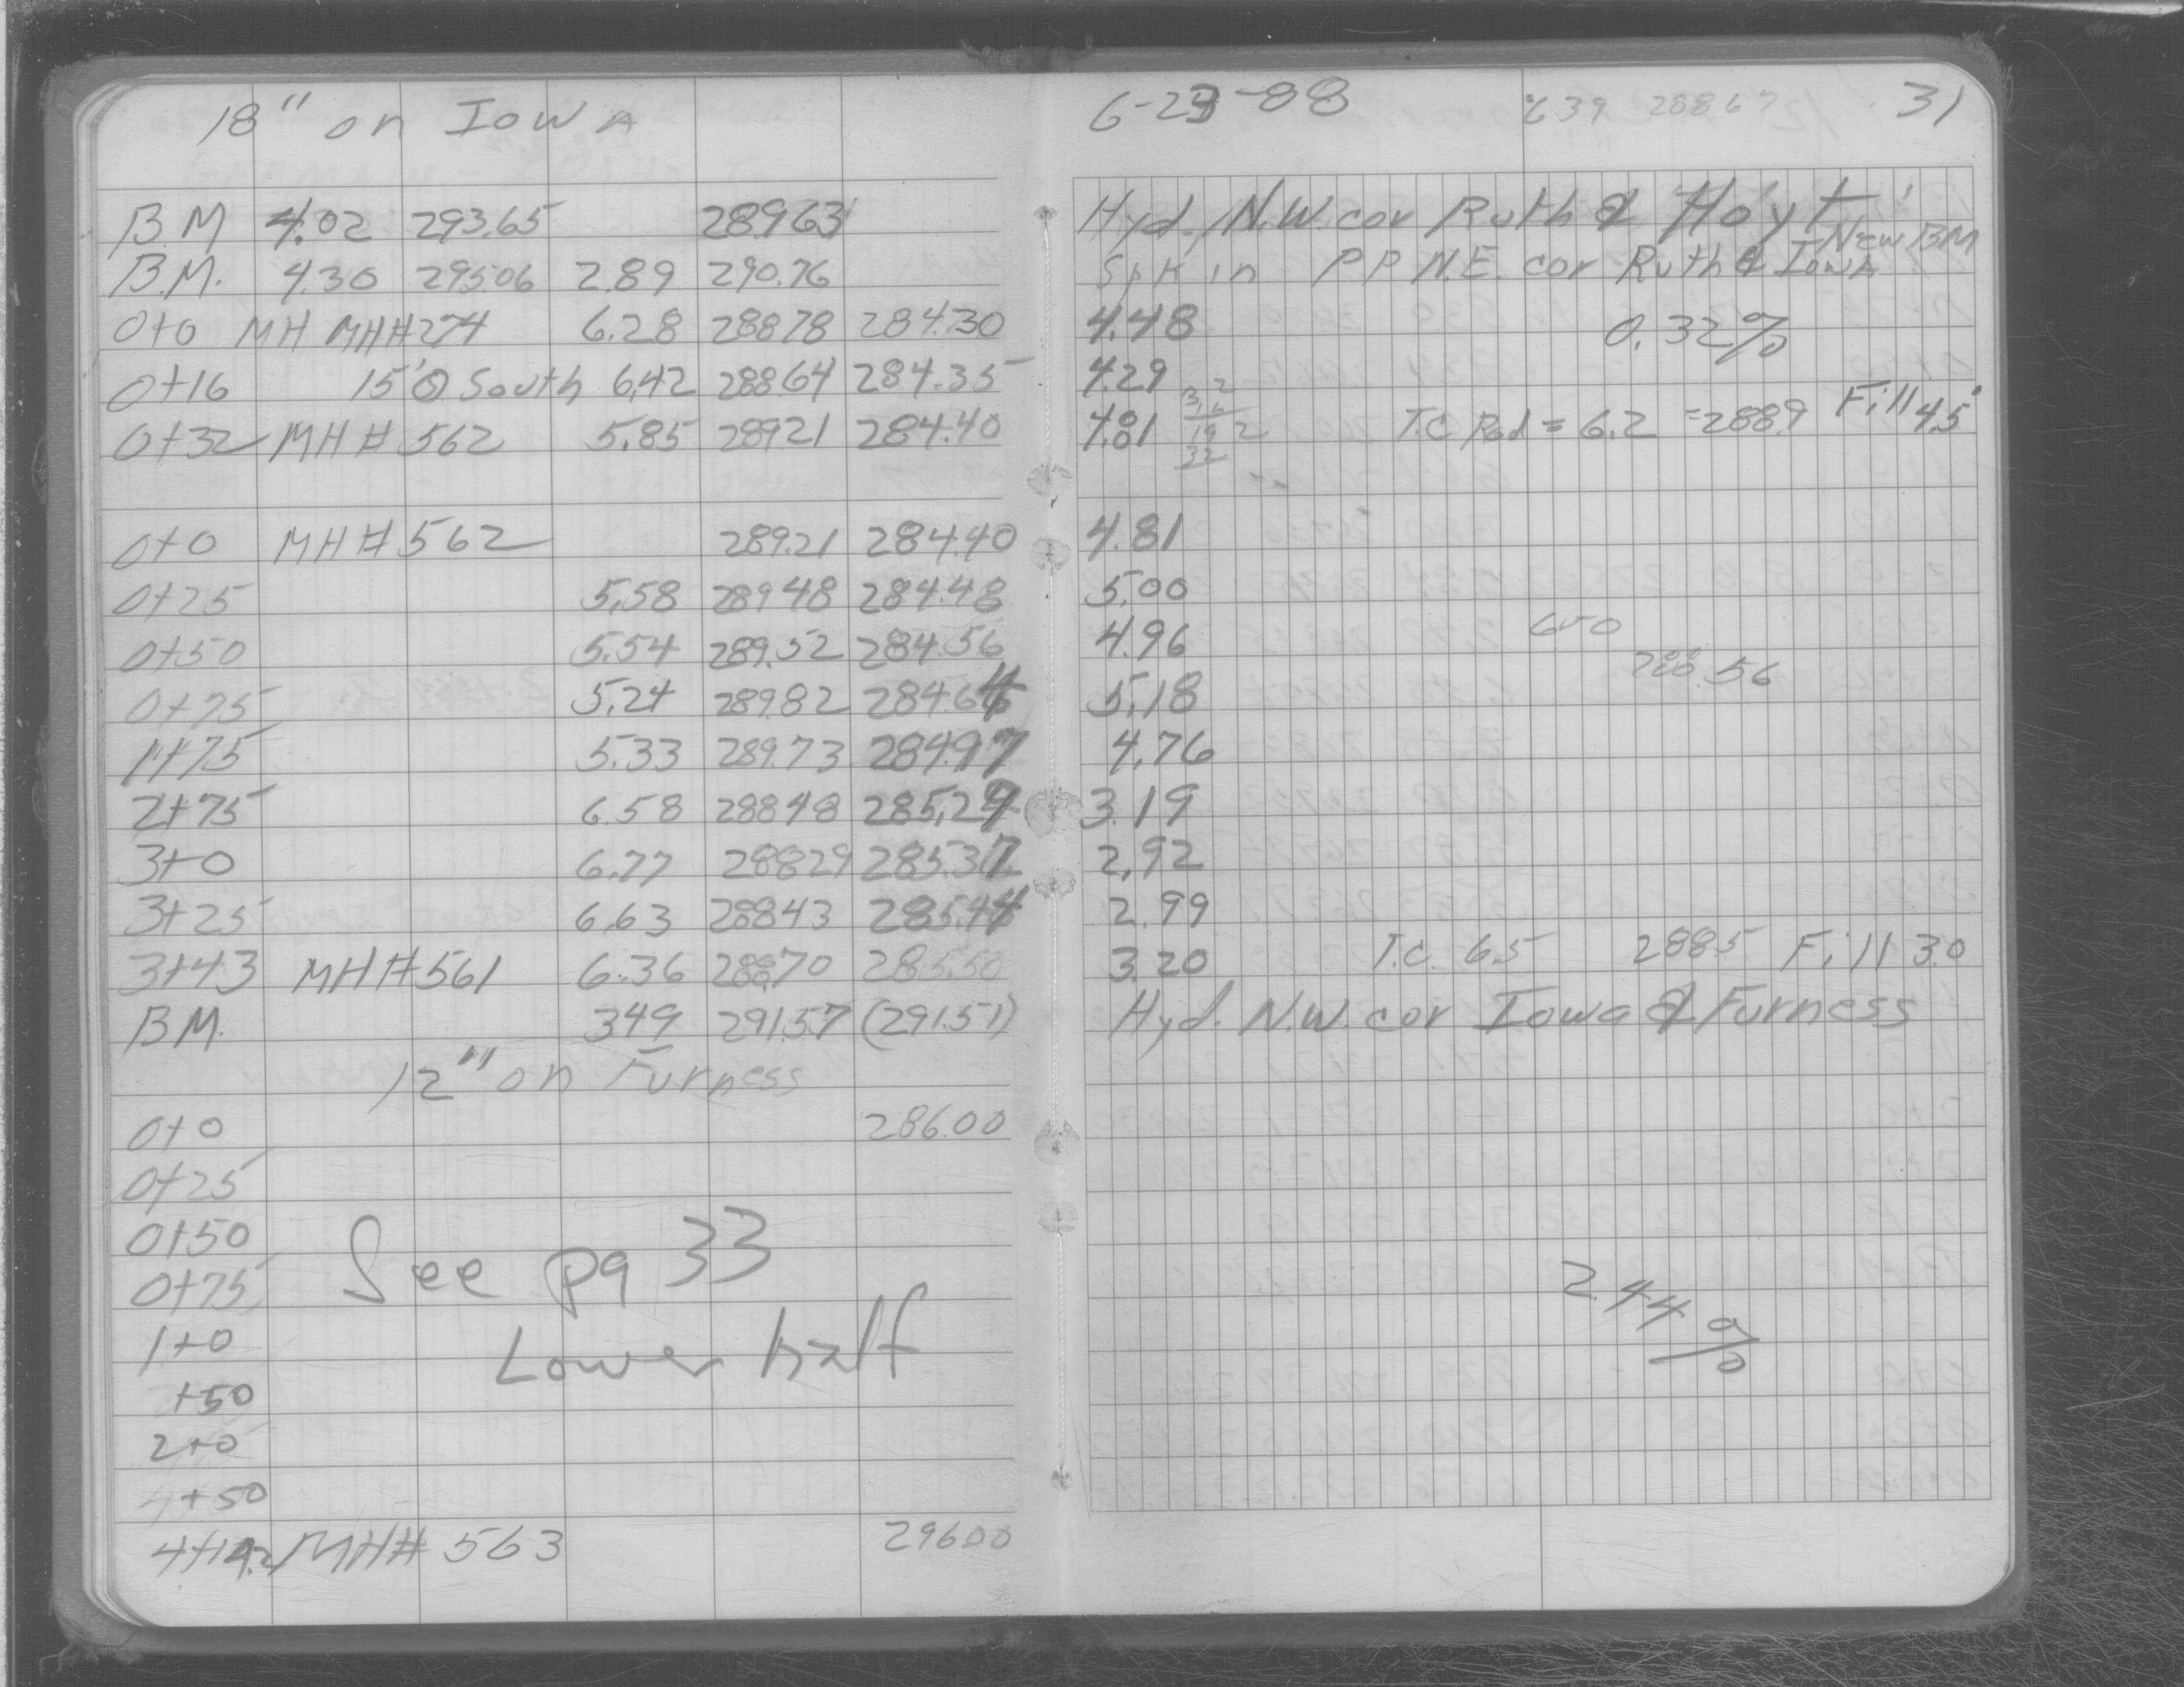 18" on Iowa
B.M 4.02 293.65 289.63
B.M. 4.30 295.06 2.89 290.76
0+0 MH MH#274 6.28 288.78 284.30
0+16 15' South 6.42 288.64 284.35
0+32 MH# 562 5.85 289.21 284.40
0+0 MH# 562 289.21 284.40
0+25 5.58 289.48 284.48
0+50 5.54 289.52 284.56
0+75 5.24 289.82 284.64
1+75 5.33 289.73 284.97
2+75 6.58 288.48 285.29
3+0 6.77 288.29 285.37
3+25 6.63 288.43 285.44
3+43 MH#561 6.36 288.70 285.50
B.M. 3.49 291.57 (291.51)
12" on Furness
0+0 286.00
0+25
0+50
0+75
See pg 33
1+0
Lower half
+50
2+0
+50
MH# 563 296.00
6-23-88 6.39 288.67 31
Hyd. N.W. cor Ruth & Hoyt
New BM
Spk in PP N.E. cor Ruth & Iowa
4.48 0.32%
4.29
4.81 T.C Rod = 6.2 = 288.9 Fill 4.5'
4.81
5.00
4.96 650
5.18 288.56
4.76
3.19
2.92
2.99
3.20 T.C. 6.5 288.5 Fill 3.0
Hyd. N.W. cor Iowa & Furness
2.44%